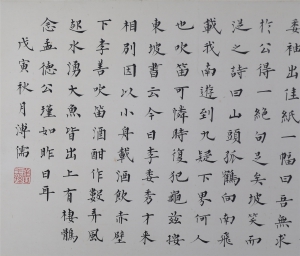 委袖出佳紙一幅曰吾無求
於公得一絕句足矣坡笑而
從之詩曰山頭孤鶴向南飛
載我南遊到九疑下界何人
也吹笛可憐時復犯龜茲按
東坡書云今日李委秀才來
相別因以小舟載酒飲赤壁
下李善吹笛酒酣作數弄風
起水湧大魚皆出上有棲鶻
念孟德公瑾如昨日耳
戊寅秋月溥儒